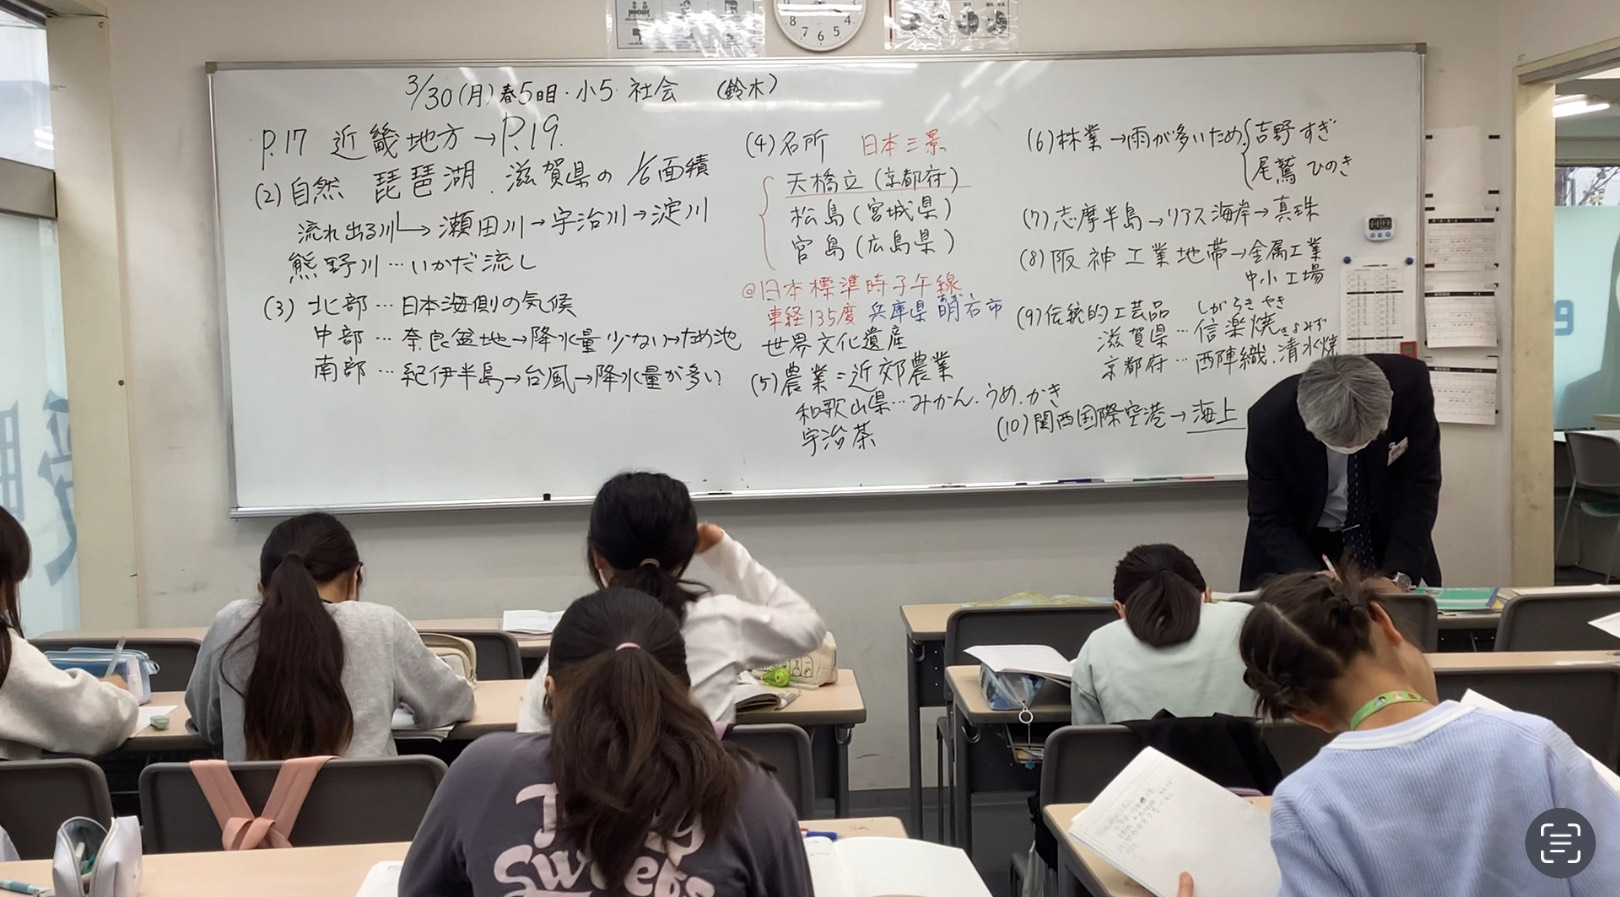 3/30(月)春5日目・小5 社会 (鈴木)
P.17 近畿地方→P.19.
(2)自然 琵琶湖.滋賀県の 1/6面積
流れ出る川→瀬田川→宇治川→淀川
熊野川…いかだ流し
(3) 北部…日本海側の気候
中部…奈良盆地→降水量少ない→ため池
南部…紀伊半島→台風→降水量が多い
(4)名所 日本三景
天橋立(京都府)
松島(宮城県)
宮島(広島県)
@日本標準時子午線
東経135度 兵庫県 明石市
世界文化遺産
(5)農業=近郊農業
和歌山県…みかん.うめ.かき
宇治茶
(6)林業→雨が多いため 吉野すぎ
尾鷲ひのき
(7)志摩半島→リアス海岸→真珠
(8)阪神工業地帯→金属工業
中小工場
(9)伝統的工芸品 しがらきやき
滋賀県…信楽焼 きよみず
京都府…西陣織.清水焼
(10)関西国際空港→海上
8 7 6 5 4
Sweets